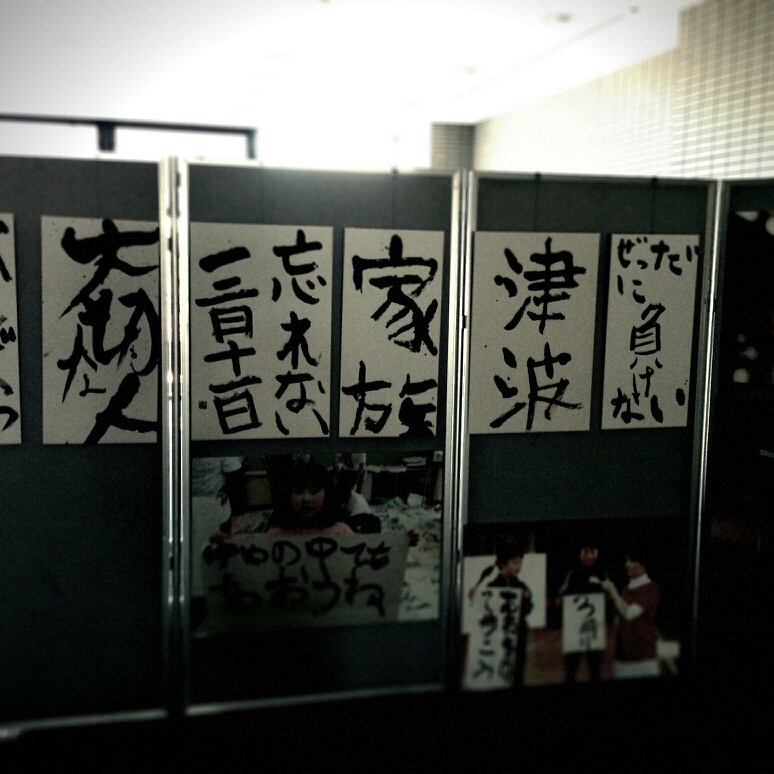 ぜったいに
負けない
津波
家族
忘れない
三月十一日
大切な人
ゆめの中でも
あおうね